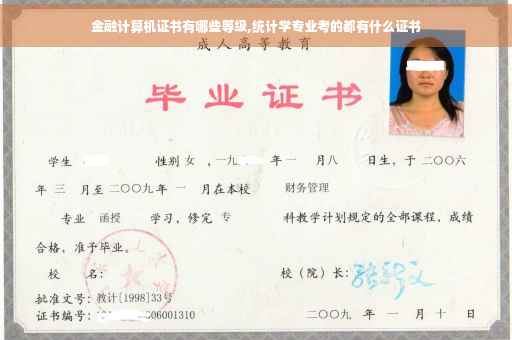 金融计算机证书有哪些等级,统计学专业考的都有什么证书
成人高等教育
毕业证书
学生 性别 女 ,一九 年 一 月八 日生，于 二〇〇六
年 三 月至 二〇〇九 年 一 月在本校 财务管理
专业 函授 学习，修完 专 科教学计划规定的全部课程，成绩
合格，准予毕业。
校 名： 校（院）长：
批准文号：教计[1998]33号
证书编号： 06001310 二〇〇九 年 一 月 十 日